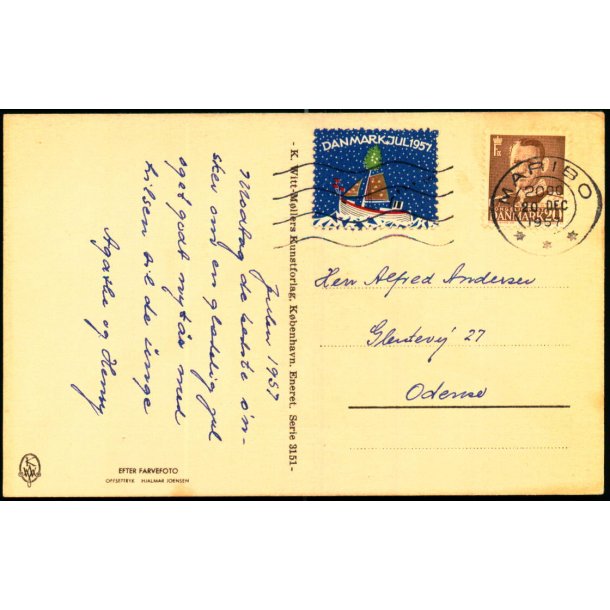 Julen 1957
Modtag de bedste øn-
sker om en glædelig jul
og et godt nytår med
hilsen til de unge
Agathe og Henry
EFTER FARVEFOTO
OFFSETTRYK HJALMAR JOENSEN
- K. Witt-Møllers Kunstforlag, København. Eneret. Serie 3151 -
DANMARK JUL 1957
DANMARK
MARIBO
DEC
1957
Herr Alfred Andersen
Glentevej 27
Odense